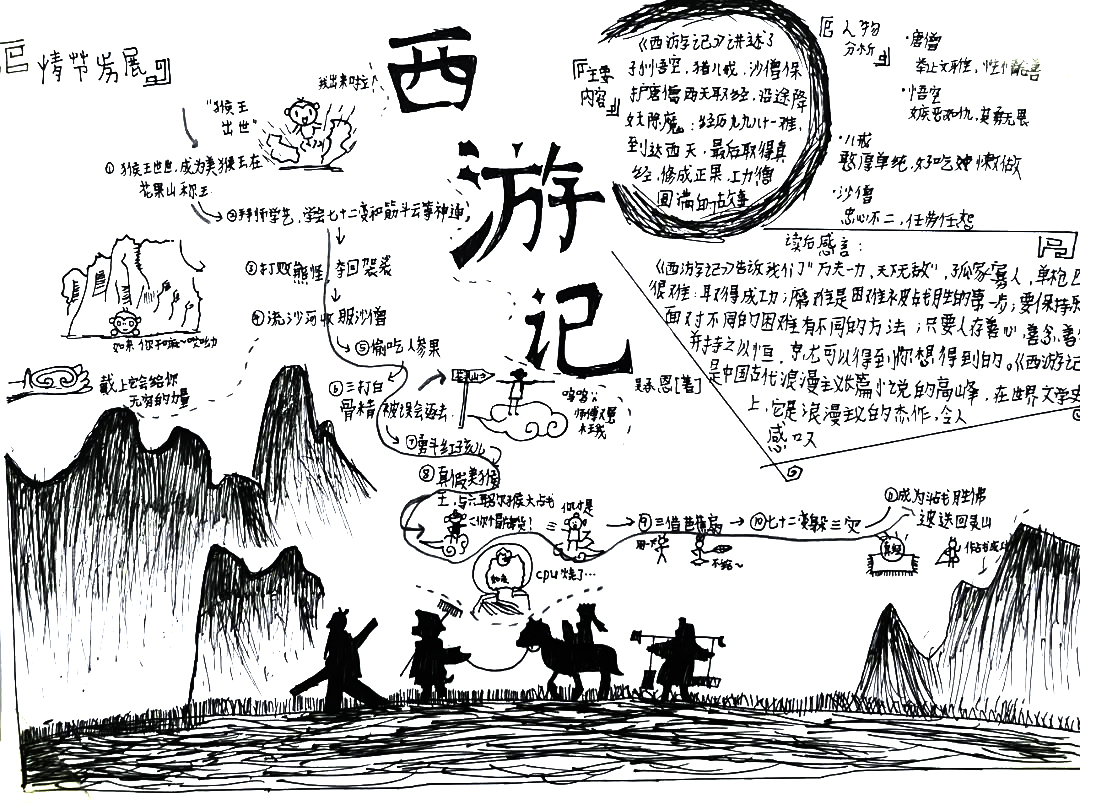 西
游
记
情节发展
"猴王
出世"
我出来啦!
①猴王出世,成为美猴王在
花果山称王.
②拜师学艺,学会七十二变和筋斗云等神通
③打败熊怪 夺回袈裟
④流沙河收服沙僧
⑤偷吃人参果
⑥三打白
骨精 被误会返去.
⑦勇斗红孩儿
⑧真假美猴
王
⑨三借芭蕉扇
→⑩七十二变躲三灾
⑪成为斗战胜佛
返回灵山
如来
戴上它会给你
无穷的力量
花果山
呜呜
师傅又
cpu烧了…
不给~
主要
内容
《西游记》讲述了
孙悟空,猪八戒,沙僧保
护唐僧西天取经,沿途降
妖除魔;经历九九八十一难,
到达西天,最后取得真
经,修成正果 功德
圆满的故事
人物
分析
·唐僧
举止文雅,性
·悟空
嫉恶如仇,英勇无畏
·八戒
憨厚单纯,好吃 懒做
·沙僧
忠心不二,任劳任怨
读后感言:
《西游记》告诉我们"万夫一力,天下无敌",孤家寡人,单枪
很难 取得成功;磨难是困难被战胜的第一步;要保持
面对不同的困难有不同的方法;只要人存善心,善念,善
并持之以恒,就可以得到你想得到的。《西游记
是中国古代浪漫主义长篇小说的高峰,在世界文学史
上,它是浪漫主义的杰作,令人
感叹
承恩[著]